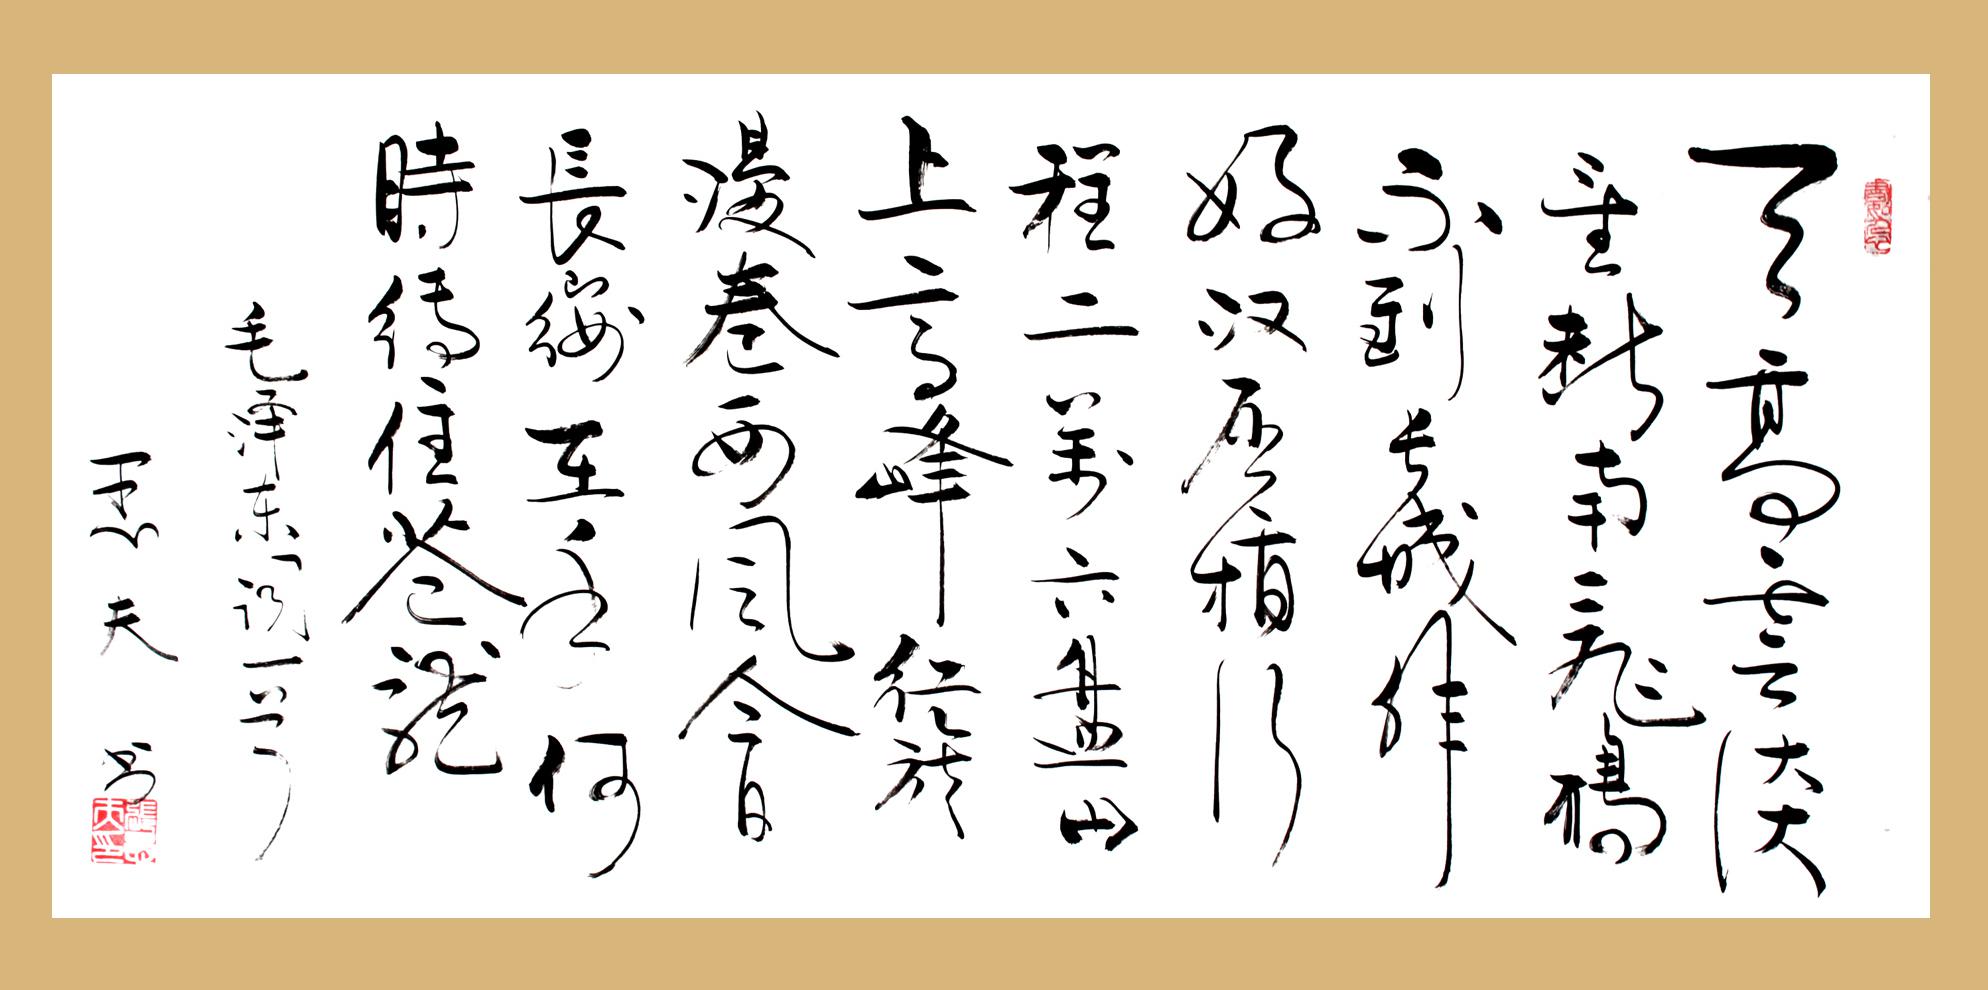 天高雲淡
望断南飛鴈
不到长城非
好汉屈指行
程二萬六盘山
上高峰红旗
漫卷西风今日
長纓在手何
時縛住苍龍
毛泽东词一首
夫书